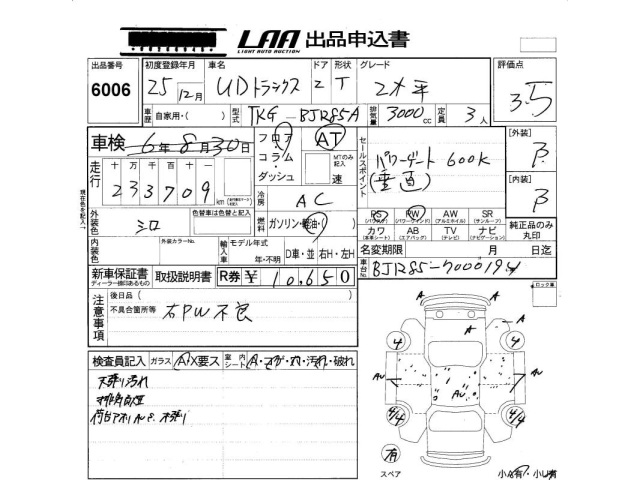 LAA 出品申込書
LIGHT AUTO AUCTION
出品番号 初度登録年月 車名 ドア 形状 グレード 評価点
6006 25年12月 UDトラックス 2 T 2t 平 3.5
車歴 自家用・( ) 型式 TKG-BJR85A 排気量 3000cc 定員 3人
車検 6年8月30日 フロア AT
コラム・ MTのみ記入
ダッシュ 速
走行 十万 万 千 百 十 一
233709 km
冷房 AC
セールスポイント
パワーゲート 600K
(垂直)
[外装]
B
[内装]
B
外装色 シロ 色替車は色替と記入
燃料 ガソリン・軽油・( )
PS PW AW SR
(パワステ) (パワーウインド) (アルミホイル) (サンルーフ)
カワ AB TV ナビ
(本革シート) (エアバッグ) (テレビ) (ナビゲーション)
純正品のみ丸印
内装色 外装カラーNo. 輸入車 モデル年式
年・不明 D車・並 右H・左H
名変期限 月 日迄
新車保証書 取扱説明書 R券 ¥ 10,650
ディーラー捺印あるもの
車台No. BJR85-7000194
注意事項 後日品( )
不具合箇所等 右PW不良
検査員記入 ガラス A・X要ス 室内シート
天張り汚れ
A
A
A
4
4
AU
AU
4/4
4/4
有
スペア 小A有・小U有
現在色を記入